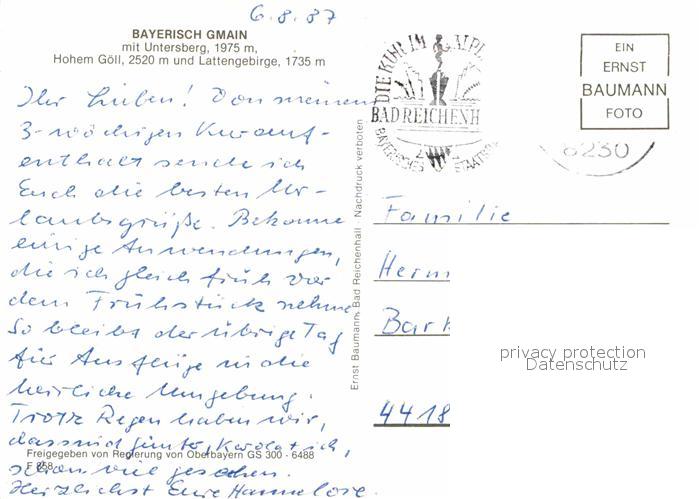 6.8.87
BAYERISCH GMAIN
mit Untersberg, 1975 m,
Hohem Göll, 2520 m und Lattengebirge, 1735 m
Ihr Lieben! Von meinem
3-wöchigen Kurauf-
enthalt sende ich
Euch die besten Ur-
laubsgrüße. Bekomme
einige Anwendungen,
die ich gleich früh vor
dem Frühstück nehme
So bleibt der übrige Tag
für Ausflüge in die
herrliche Umgebung.
Trotz Regen haben wir,
ich,
Freigegeben von Regierung von Oberbayern GS 300 - 6488
schon viel gesehen.
Herzlichst Eure Hannelore
Ernst Baumann, Bad Reichenhall Nachdruck verboten
DIE KUH IM ALPE
BAD REICHENH
BAYERISCHES STAATSB
EIN
ERNST
BAUMANN
FOTO
8230
Familie
Herm
Bark
4418
privacy protection
Datenschutz